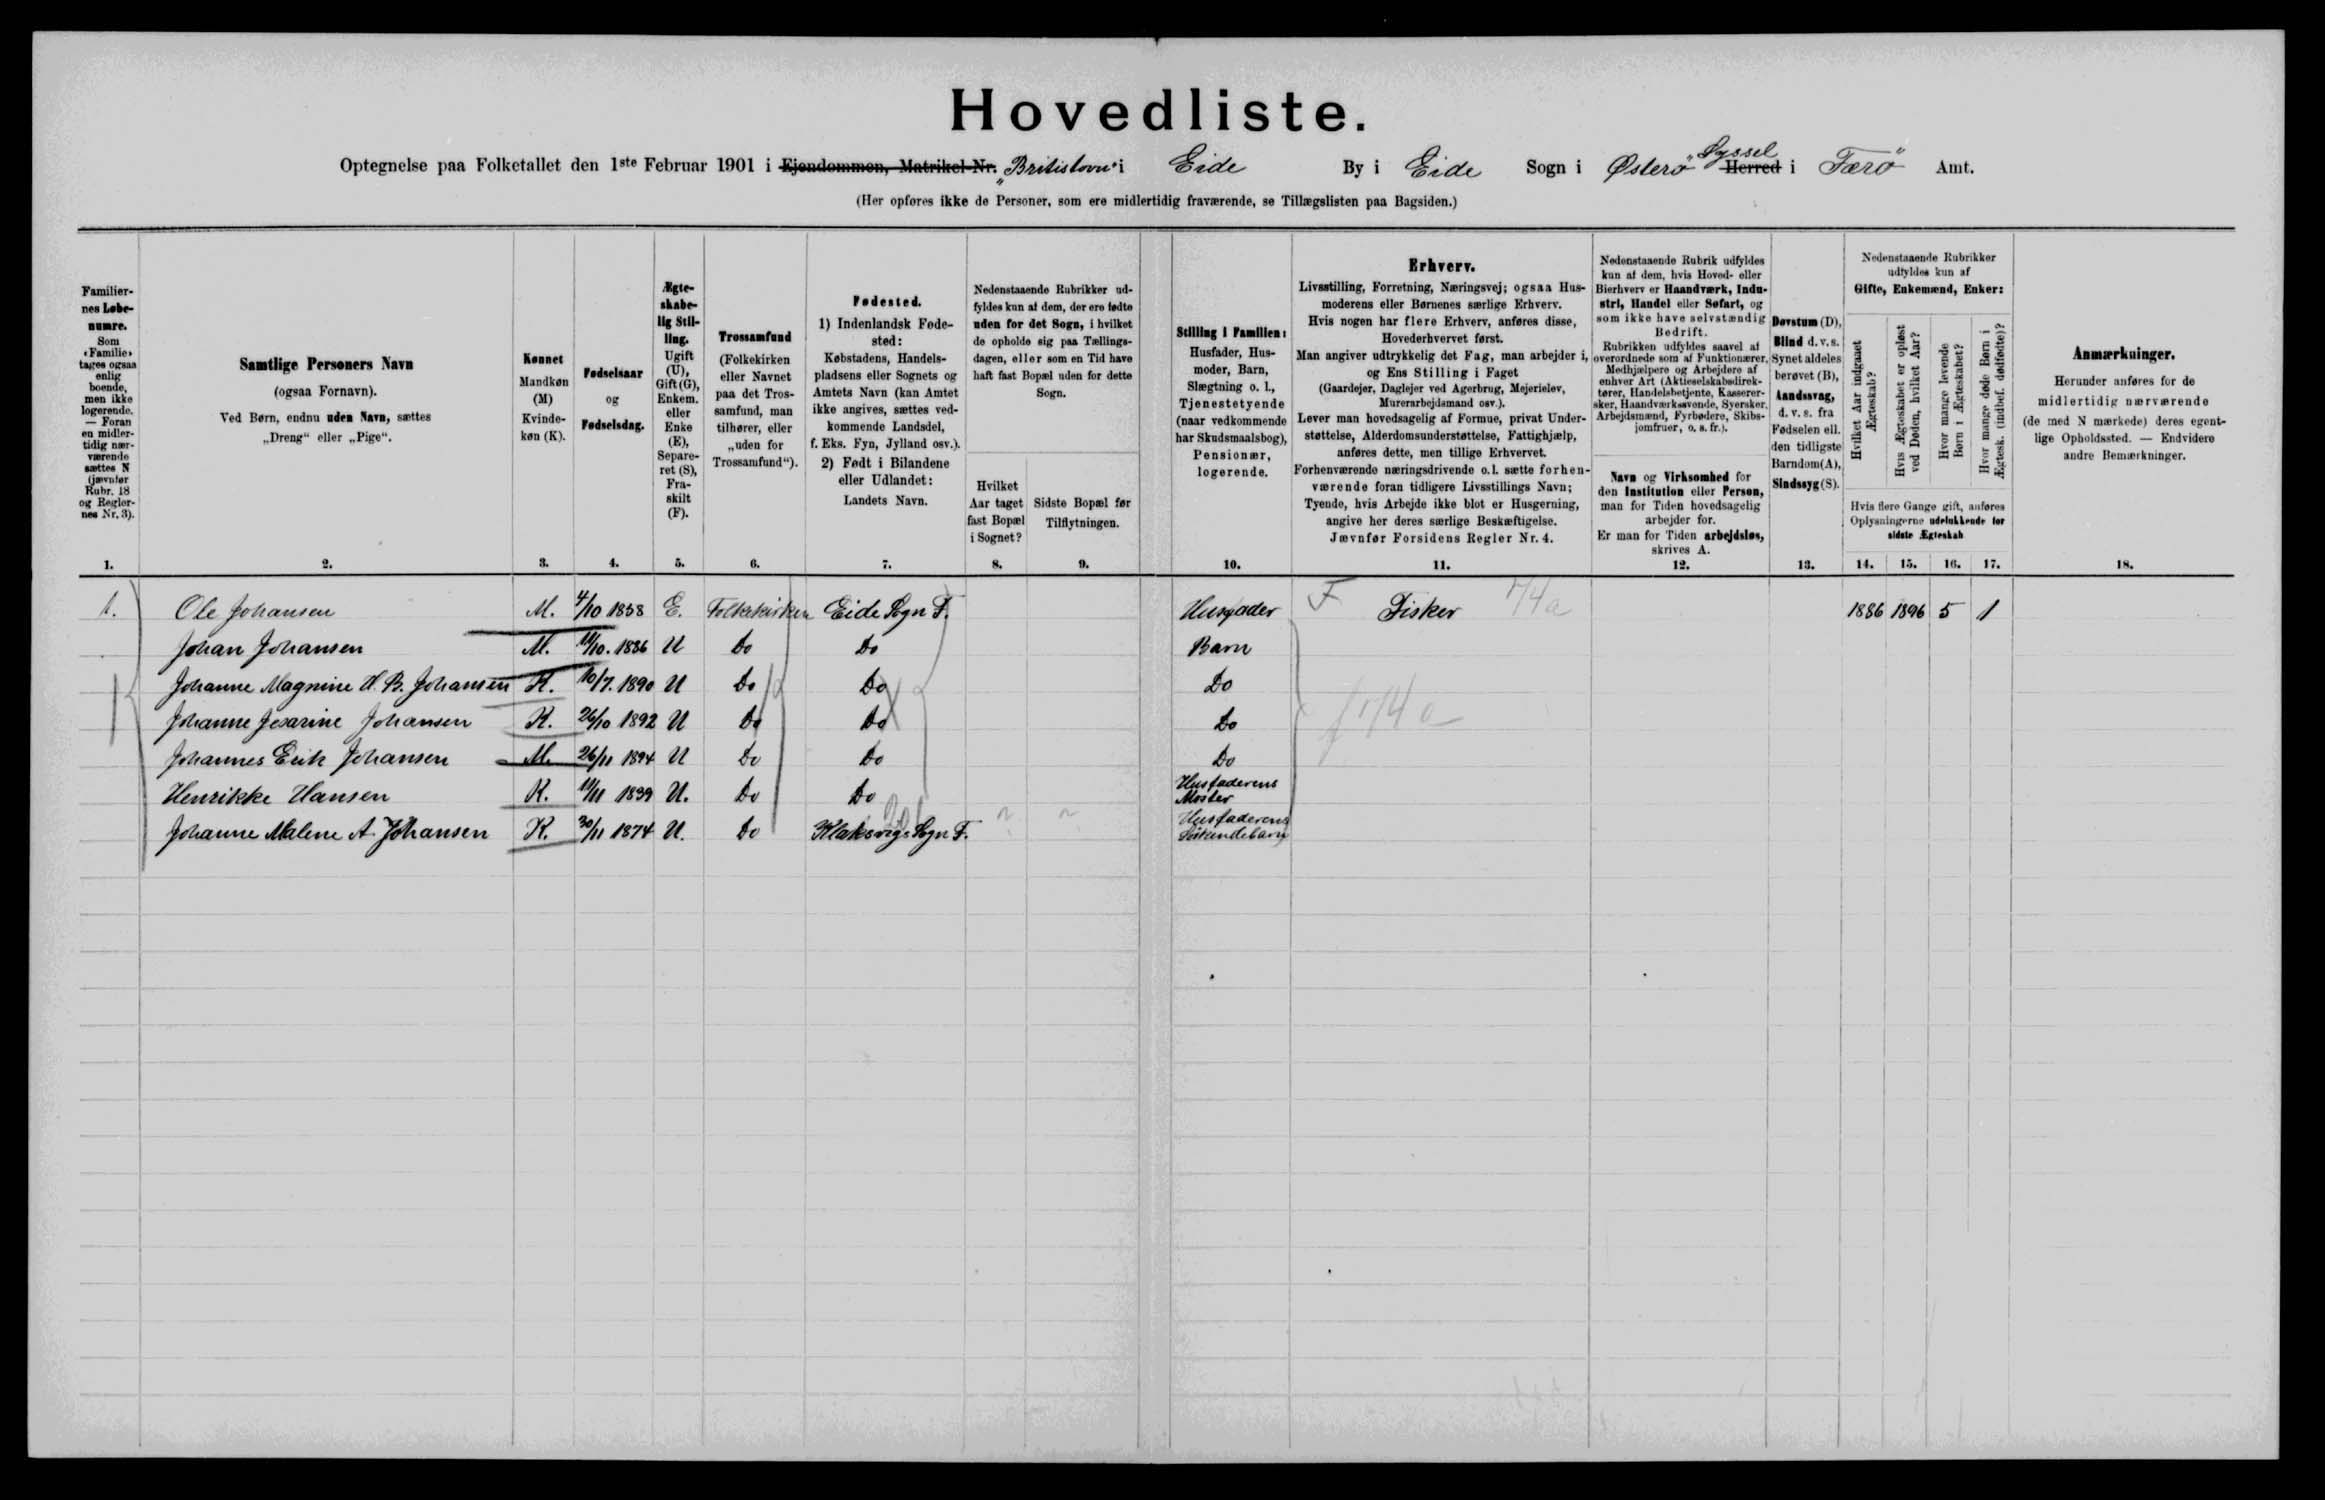 Hovedliste.
Optegnelse paa Folketallet den 1ste Februar 1901 i Ejendommen, Matrikel-Nr. „Britistovu" i Eide By i Eide Sogn i Østerø Syssel Herred i Færø Amt.
(Her opføres ikke de Personer, som ere midlertidig fraværende, se Tillægslisten paa Bagsiden.)
Familiernes Løbenumre.
Som «Familie» tages ogsaa enlig boende, men ikke logerende. — Foran en midlertidig nærværende sættes N (jævnfør Rubr. 18 og Reglernes Nr. 3).
Samtlige Personers Navn
(ogsaa Fornavn).
Ved Børn, endnu uden Navn, sættes
„Dreng" eller „Pige".
Kønnet
Mandkøn
(M)
Kvindekøn (K).
Fødselsaar
og
Fødselsdag.
Ægteskabelig Stilling.
Ugift (U), Gift (G), Enkem. eller Enke (E), Separeret (S), Fraskilt (F).
Trossamfund
(Folkekirken eller Navnet paa det Trossamfund, man tilhører, eller „uden for Trossamfund").
Fødested.
1) Indenlandsk Fødested:
Købstadens, Handelspladsens eller Sognets og Amtets Navn (kan Amtet ikke angives, sættes vedkommende Landsdel, f. Eks. Fyn, Jylland osv.).
2) Født i Bilandene eller Udlandet:
Landets Navn.
Nedenstaaende Rubrikker udfyldes kun af dem, der ere fødte uden for det Sogn, i hvilket de opholde sig paa Tællingsdagen, eller som en Tid have haft fast Bopæl uden for dette Sogn.
Hvilket Aar taget fast Bopæl i Sognet?
Sidste Bopæl før Tilflytningen.
Stilling i Familien:
Husfader, Husmoder, Barn, Slægtning o. l., Tjenestetyende (naar vedkommende har Skudsmaalsbog), Pensionær, logerende.
Erhverv.
Livsstilling, Forretning, Næringsvej; ogsaa Husmoderens eller Børnenes særlige Erhverv.
Hvis nogen har flere Erhverv, anføres disse, Hovederhvervet først.
Man angiver udtrykkelig det Fag, man arbejder i, og Ens Stilling i Faget
(Gaardejer, Daglejer ved Agerbrug, Mejerielev, Murerarbejdsmand osv.).
Lever man hovedsagelig af Formue, privat Understøttelse, Alderdomsunderstøttelse, Fattighjælp, anføres dette, men tillige Erhvervet.
Forhenværende næringsdrivende o. l. sætte forhenværende foran tidligere Livsstillings Navn;
Tyende, hvis Arbejde ikke blot er Husgerning, angive her deres særlige Beskæftigelse.
Jævnfør Forsidens Regler Nr. 4.
Nedenstaaende Rubrik udfyldes kun af dem, hvis Hoved- eller Bierhverv er Haandværk, Industri, Handel eller Søfart, og som ikke have selvstændig Bedrift.
Rubrikken udfyldes saavel af overordnede som af Funktionærer, Medhjælpere og Arbejdere af enhver Art (Aktieselskabsdirektører, Handelsbetjente, Kasserersker, Haandværkssvende, Syersker, Arbejdsmænd, Fyrbødere, Skibsjomfruer, o. s. fr.).
Navn og Virksomhed for den Institution eller Person, man for Tiden hovedsagelig arbejder for.
Er man for Tiden arbejdsløs, skrives A.
Døvstum (D), Blind d. v. s. Synet aldeles berøvet (B), Aandssvag, d. v. s. fra Fødselen ell. den tidligste Barndom (A), Sindssyg (S).
Nedenstaaende Rubrikker udfyldes kun af
Gifte, Enkemænd, Enker:
Hvilket Aar indgaaet Ægteskab?
Hvis Ægteskabet er opløst ved Døden, hvilket Aar?
Hvor mange levende Børn i Ægteskabet?
Hvor mange døde Børn i Ægtesk. (indbef. dødfødte)?
Hvis flere Gange gift, anføres Oplysningerne udelukkende for sidste Ægteskab
Anmærkninger.
Herunder anføres for de midlertidig nærværende (de med N mærkede) deres egentlige Opholdssted. — Endvidere andre Bemærkninger.
1. 2. 3. 4. 5. 6. 7. 8. 9. 10. 11. 12. 13. 14. 15. 16. 17. 18.
1. Ole Johansen M. 4/10 1858 E. Folkekirken Eide Sogn F. Husfader F Fisker 1/4 a 1886 1896 5 1
Johan Johansen M. 11/10. 1886 U Do Do Barn
Johanne Magnine H. B. Johansen K. 10/7. 1890 U Do Do Do
Johanne Jesarine Johansen K. 26/10 1892 U Do Do Do
Johannes Erik Johansen M. 26/11 1894 U Do Do Do
Henrikke Hansen K. 11/11 1839 U. Do Do Husfaderens Moster
Johanne Malene A. Johansen K. 30/11 1874 U. Do Klaksvig Sogn F. ? ? Husfaderens Söskendebarn